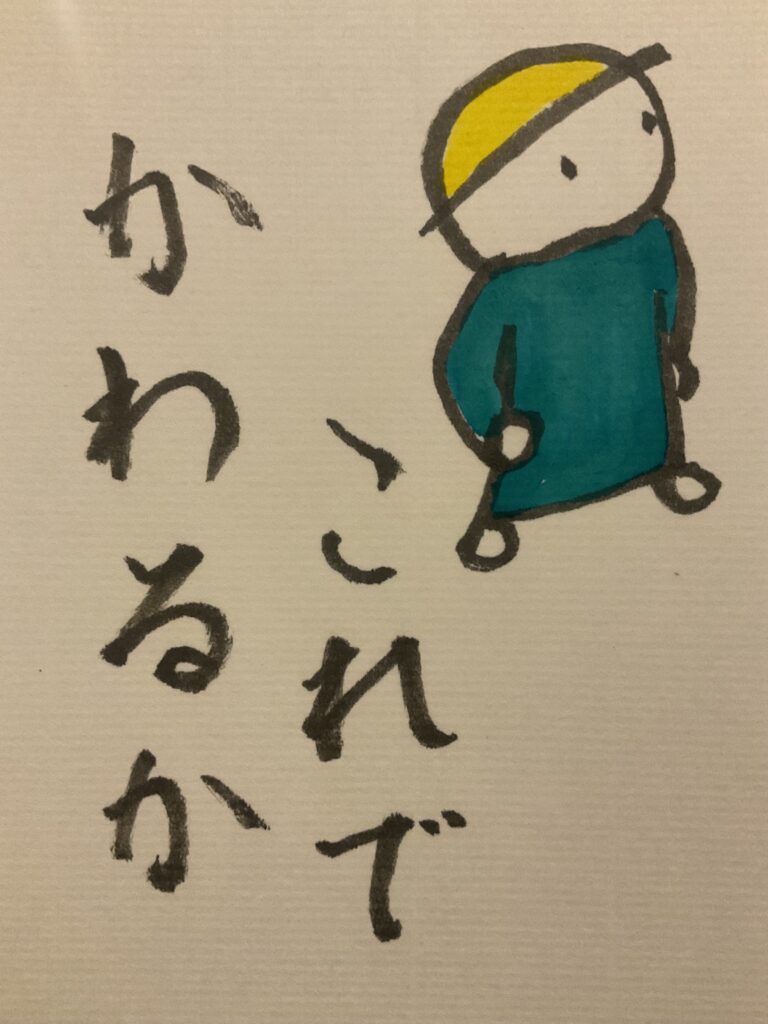 これで
かわるか